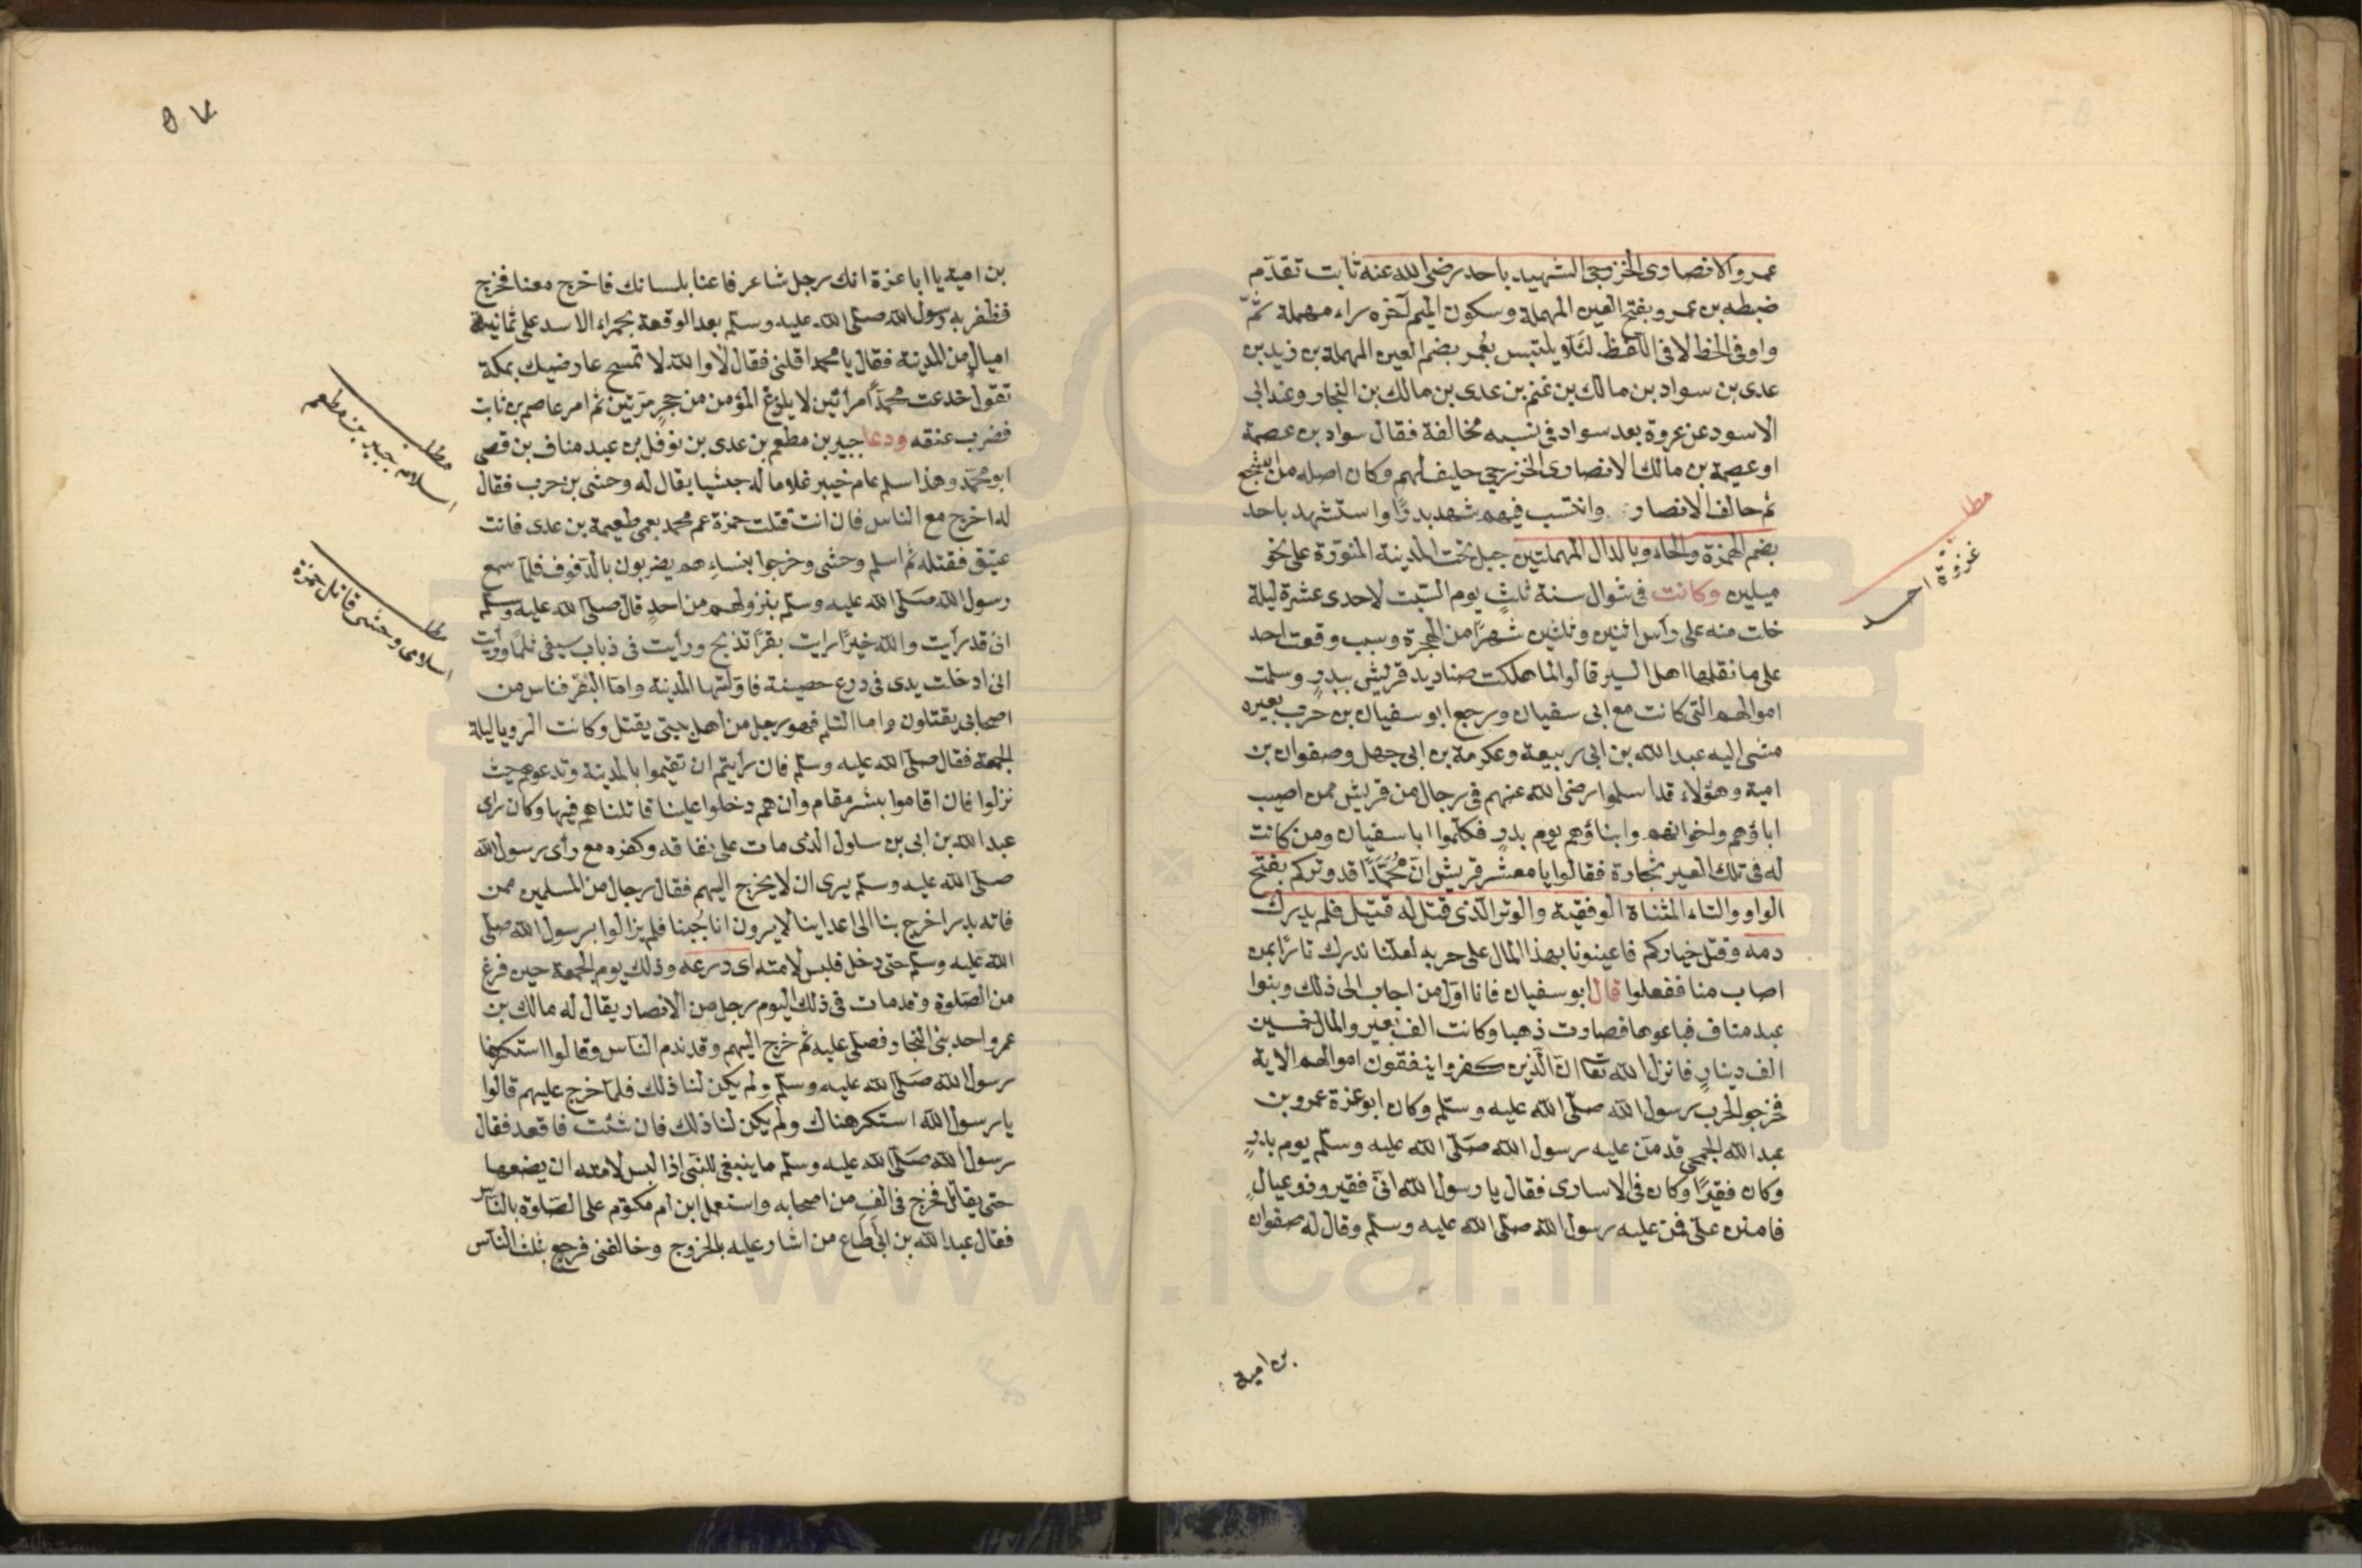 عمرو الانصاوى الخزرجى الشهيد باحد رضى الله عنه ثابت تقدّم
ضبطه بن عمرو بفتح العين المهملة وسكون الميم آخره راء مهملة ثمّ
واو فى الخط لا فى اللفظ لئلا يلتبس بعُمر بضم العين المهملة بن زيد بن
عدى بن سواد بن مالك بن غنم بن عدى بن مالك بن النجار وعند ابى
الاسود عن عروة بعد سواد فى نسبه مخالفة فقال سواد بن عصمة
او عصيمة بن مالك الانصاوى الخزرجى حليف لهم وكان اصله من اشجع
ثم حالف الانصار وانتسب فيهم شهد بدرًا واستشهد باحد
بضم الهمزة والحاء وبالدال المهملتين جبل تحت المدينة المنوّرة على نحو
ميلين وكانت فى شوال سنة ثلثٍ يوم السّبت لاحدى عشرة ليلة
خلت منه على رأس اثنين وثلثين شهرًا من الهجرة وسبب وقعت احد
على ما نقلها اهل السير قالوا لما هلكت صناديد قريش ببدرٍ وسلمت
اموالهم التى كانت مع ابى سفيان ورجع ابو سفيان بن حرب بعيره
مشى اليه عبد الله بن ابى ربيعة وعكرمة بن ابى جهل وصفوان بن
امية وهؤلاء قد اسلموا رضى الله عنهم فى رجال من قريش ممن اصيب
اباؤهم واخوانهم وابناؤهم يوم بدرٍ فكلّموا ابا سفيان ومن كانت
له فى تلك العير تجارة فقالوا يا معشر قريش انّ مُحمّدًا قد وتركم بفتح
الواو والتاء المثناة الوفقية والوتر الذى قتل له قتيل فلم يدرك
دمه وقتل خياركم فاعينونا بهذا المال على حربه لعلنا ندرك ثارًا بمن
اصاب منا ففعلوا قال ابو سفيان فانا اوّل من اجاب الى ذلك وبنوا
عبد مناف فباعوها فصاوت ذهبا وكانت الف بعير والمال خمسين
الف دينارٍ فانزل الله تعا انّ الّذين كفروا ينفقون اموالهم الاية
فخرجوا لحرب رسول الله صلّى الله عليه وسلّم وكان ابو عزة عمرو بن
عبد الله الجمحى قد منّ عليه رسول الله صلّى الله عليه وسلّم يوم بدرٍ
وكان فقيرًا وكان فى الاسارى فقال يا رسول الله انّى فقير وذو عيالٍ
فامنن علىّ فمنّ عليه رسول الله صلى الله عليه وسلّم وقال له صفوان
بن امية
مطلب
غزوة احد
٥٧
بن امية يا ابا عزة انك رجل شاعر فاعنا بلسانك فاخرج معنا فخرج
فظفر به رسول الله صلّى الله عليه وسلّم بعد الوقعة بحمراء الاسد على ثمانية
اميال من المدينة فقال يا محمد اقلنى فقال لا والله لا تمسح عارضيك بمكة
تقول خدعت محمّدًا مرّتين لا يلدغ المؤمن من جحرٍ مرّتين ثم امر عاصم بن ثابت
فضرب عنقه ودعا جبير بن مطعم بن عدى بن نوفل بن عبد مناف بن قصى
ابو محمّد وهذا اسلم عام خيبر غلاما له حبشيا يقال له وحشى بن حرب فقال
له اخرج مع الناس فان انت قتلت حمزة عم محمد بعمى طعيمة بن عدى فانت
عتيق فقتله ثم اسلم وحشى وخرجوا بنساءهم يضربون بالدّفوف فلمّا سمع
رسول الله صَلّى الله عليه وسلّم بنزولهم من احدٍ قال صلى الله عليه وسلّم
انى قد رأيت والله خيرًا رايت بقرًا تذبح ورأيت فى ذباب سيفى ثلمًا ورأيت
انى ادخلت يدى فى درع حصينة فاوّلتها المدينة وامّا البقر فناس من
اصحابى يقتلون واما الثلم فهو رجل من اهل بيتى يقتل وكانت الرويا ليلة
الجمعة فقال صلّى الله عليه وسلّم فان رأيتم ان تقيموا بالمدينة وتدعوهم حيث
نزلوا فان اقاموا بشر مقام وان هم دخلوا علينا قاتلناهم فيها وكان راى
عبد الله بن ابى بن ساول الذى مات على نفاقه وكفره مع رأى رسول الله
صلّى الله عليه وسلّم يرى ان لا يخرج اليهم فقال رجال من المسلمين ممن
فاته بدر اخرج بنا الى اعداينا لا يرون انا جُبنا فلم يزالوا برسول الله صلّى
الله عليه وسلّم حتى دخل فلبس لامته اى درعه وذلك يوم الجمعة حين فرغ
من الصّلوة وقد مات فى ذلك اليوم رجل من الانصار يقال له مالك بن
عمرو احد بنى النجار فصلّى عليه ثم خرج اليهم وقد ندم الناس وقالوا استكرهنا
رسول الله صَلّى الله عليه وسلّم ولم يكن لنا ذلك فلمّا خرج عليهم قالوا
يا رسول الله استكرهناك ولم يكن لنا ذلك فان شئت فاقعد فقال
رسول الله صَلّى الله عليه وسلّم ما ينبغى للنّبى اذا لبس لامته ان يضعها
حتى يقاتل فخرج فى الفٍ من اصحابه واستعمل ابن ام مكتوم على الصّلوة بالنّاس
فقال عبد الله بن ابى اطاع من اشار عليه بالخروج وخالفنى فرجع بثلث النّاس
مطلب
اسلام جبير بن مطعم
مطلب
اسلامى وحشى قاتل حمزة
www.icar.ir